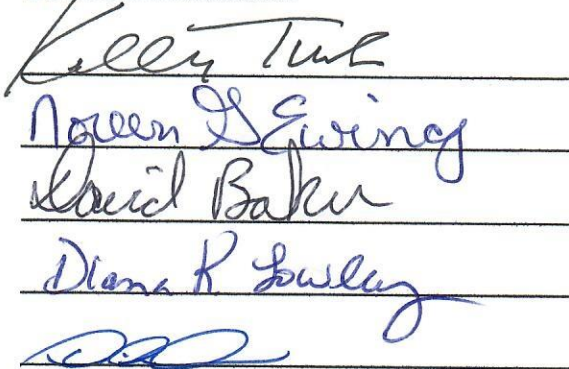 Kelly Turk
Noreen G Ewing
David Baker
Diana R Lowley